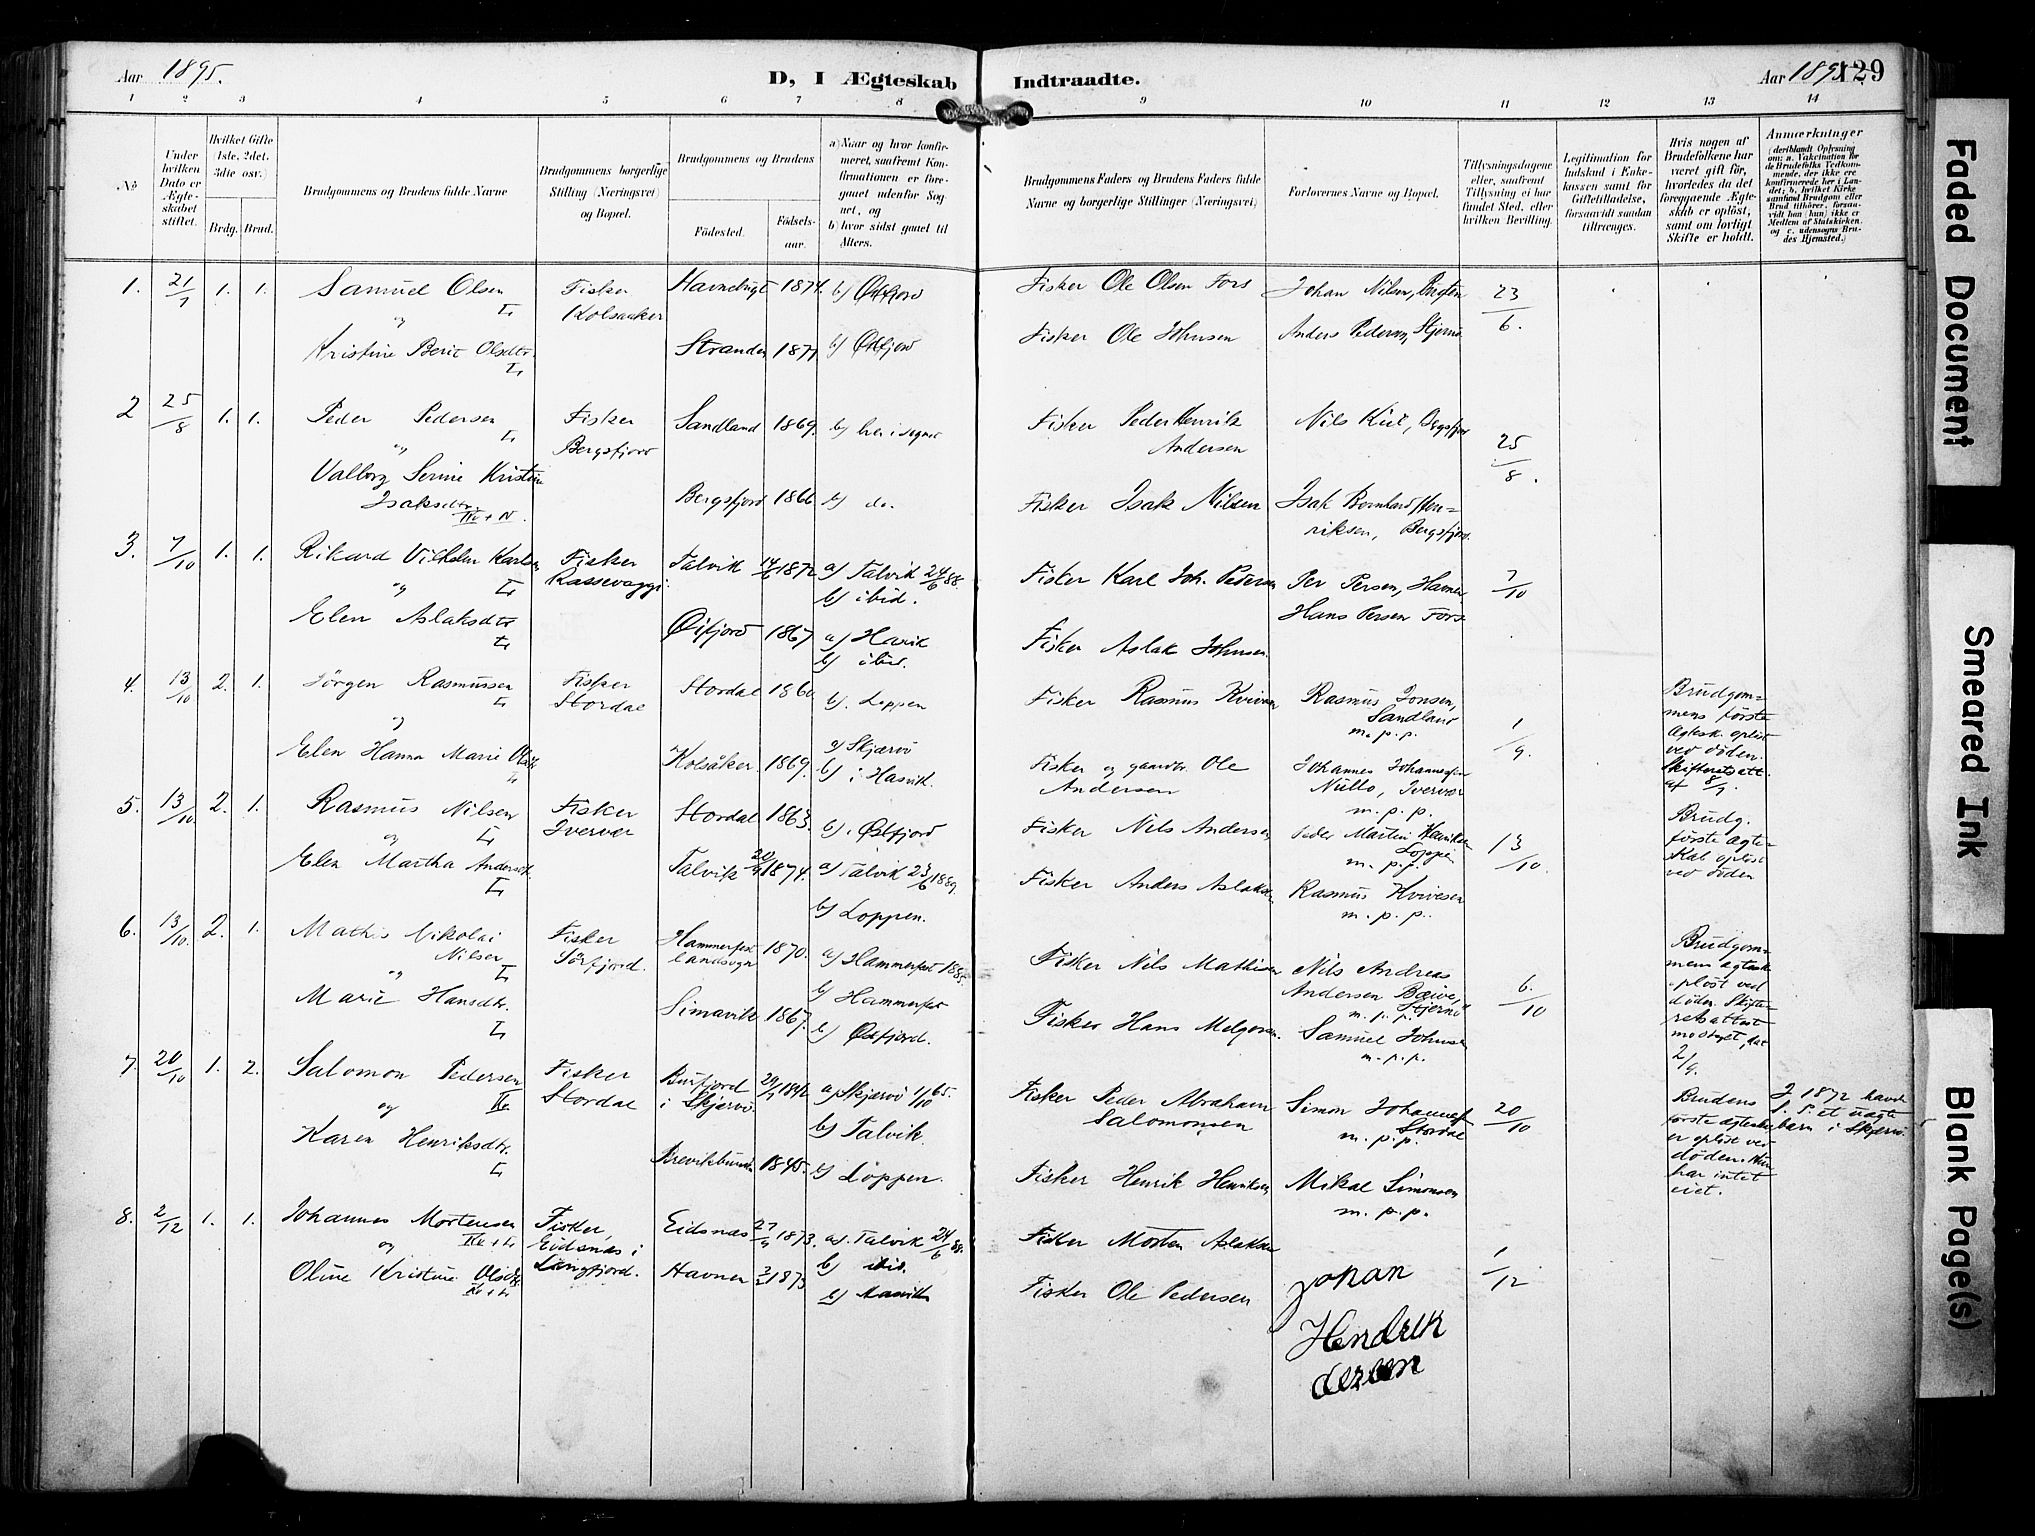 Aar 1895.
D, I Ægteskab Indtraadte.
Aar 1895
129
1 2 3 4 5 6 7 8 9 10 11 12 13 14
No
Under hvilken Dato er Ægteskabet stiftet.
Hvilket Gifte (1ste, 2det, 3die osv.)
Brdg. Brud.
Brudgommens og Brudens fulde Navne
Brudgommens borgerlige Stilling (Næringsvei) og Bopæl.
Brudgommens og Brudens
Fødested. Fødselsaar.
a) Naar og hvor konfirmeret, saafremt Konfirmationen er foregaaet udenfor Sognet, og
b) hvor sidst gaaet til Alters.
Brudgommens Faders og Brudens Faders fulde Navne og borgerlige Stillinger (Næringsvei)
Forlovernes Navne og Bopæl.
Tillysningsdagene eller, saafremt Tillysning ei har fundet Sted, efter hvilken Bevilling.
Legitimation for Indskud i Enkekassen samt for Giftetilladelse, forsaavidt saadan tiltrænges.
Hvis nogen af Brudefolkene har været gift før, hvorledes da det foregaaende Ægteskab er opløst, samt om lovligt Skifte er holdt.
Anmærkninger
(deriblandt Oplysning om: a. Vakcination for de Brudefolks Vedkommende, der ikke ere konfirmerede her i Landet; b. hvilket Kirkesamfund Brudgom eller Brud tilhører, forsaavidt han (hun) ikke er Medlem af Statskirken, og c. udensogns Brudes Hjemsted.)
1. 21/7 1. 1. Samuel Olsen L. Fisker Kolsaaker 1874. b) Øxfjord Fisker Ole Olsen Fors Johan Nilsen, 23/6.
og
Kristine Berit Olsdtr. L. Strander 1871 b) Øxfjord Fisker Ole Johnsen Anders Pedersen, Stjernø
2 25/8 1. 1. Peder Pedersen L. Fisker Bergsfjord Sandland 1869. b) her i sognet Fisker Peder Henrik Andersen Nils Kiil, Bergsfjor 25/8.
og
Valborg Serine Kristine Isaksdtr. Bergsfjord 1866 b) do. Fisker Isak Nilsen Isak Bernhard Henriksen, Bergsfjord.
3. 7/10 1. 1. Rikard Vilhelm Karlsen L. Fisker Talvik 1872 a) Talvik 24/6 88. b) ibid. Fisker Karl Joh. Pedersen Per Persen, Havnen, 7/10
og
Elen Aslaksdtr L. Øxfjord 1867 a) Hasvik b) ibid. Fisker Aslak Johnsen. Hans Persen Fors
4. 13/10 2. 1. Jörgen Rasmussen L. Fisker Stordal Stordal 1860 b). Loppen Fisker Rasmus Kviven Rasmus Jonsen, Sandland m. p. p. 1/9.
og
Elen Hanna Marie Olsdtr L. Kolsåker. 1869. a) Skjærvö b) i Hasvik. Fisker og gaardbr. Ole Andersen Johannes Johannesen Nullo, Iverver m. p. p.
Brudgommens første Ægtesk. opløst ved døden. Skifteretsatt. af 8/9.
5. 13/10 2. 1. Rasmus Nilsen L. Fisker Iverver Stordal 1863. b). Øxfjord Fisker Nils Andersen Peder Martin Henriksen Loppen m. p. p. 13/10.
og
Elen Martha Andersdtr. L. Talvik 1874. a) Talvik 23/6 1889. b) Loppen. Fisker Anders Aslaksen Rasmus Kvivesen m. p. p.
Brudg. første ægteskab opløst ved døden
6. 13/10. 2. 1. Mathis Nikolai Nilsen L. Fisker Sørfjord. Hammerfest landsogn 1870. a) Hammerfest 1885. b) Hammerfest Fisker Nils Mathisen Nils Andreas Andersen Bæive, Stjernø m. p. p. 6./10
og
Marie Hansdtr. L. Simavik 1867. b) Øxfjord. Fisker Hans Samuel Johnsen m. p. p.
Brudgommens ægtesk. opløst ved døden. Skifteretsattest modtaget, dat 2/9.
7. 20/10 1. 2. Salomon Pedersen Fisker Stordal Burfjord i Skjærvö 1842 a) Skjærvö 1/10 65. b) Talvik. Fisker Peder Abraham Salomonsen Simon Johannes. Stordal m. p. p. 20/10
og
Karen Henriksdtr. L. 1845. b) Loppen. Fisker Henrik Henriksen Mikal Simonsen m. p. p.
Brudens første ægteskab er opløst ved døden. Hun har intet eiet.
I 1872 havde S. P. et uægte barn i Skjervø.
8. 2/12 1. 1. Johannes Mortensen Fisker, Eidsnas i Langfjord. Eidsnas 1873. a). Talvik 24/6 88. b) ibid. Fisker Morten Aslaksen 1/12
og
Oline Kristine Olsdtr Havnen 1873 b) Hasvik Fisker Ole Pedersen Johan Hendrik
Faded Document
Smeared Ink
Blank Page(s)